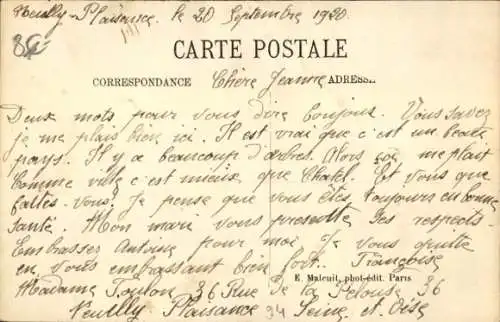 Neuilly-Plaisance, le 20 Septembre 1920
CARTE POSTALE
CORRESPONDANCE Chère Jeanne ADRESSE
Deux mots pour vous dire bonjous. Vous savez
je me plais bien ici. Il est vrai que c'est un beau
pays. Il y a beaucoup d'arbres. Alors ça me plait
Comme ville c'est mieux que Chatel. Et vous que
faites-vous. Je pense que vous êtes toujours en bonne
santé. Mon mari vous presente ses respects.
Embrasser Antoine pour moi Je vous quitte
en vous embrassant bien fort. Françoise
E. Maleuit, phot-édit. Paris
Madame Toulon 36 Rue de la Pelouse 36
Neuilly Plaisance 34 Seine et Oise